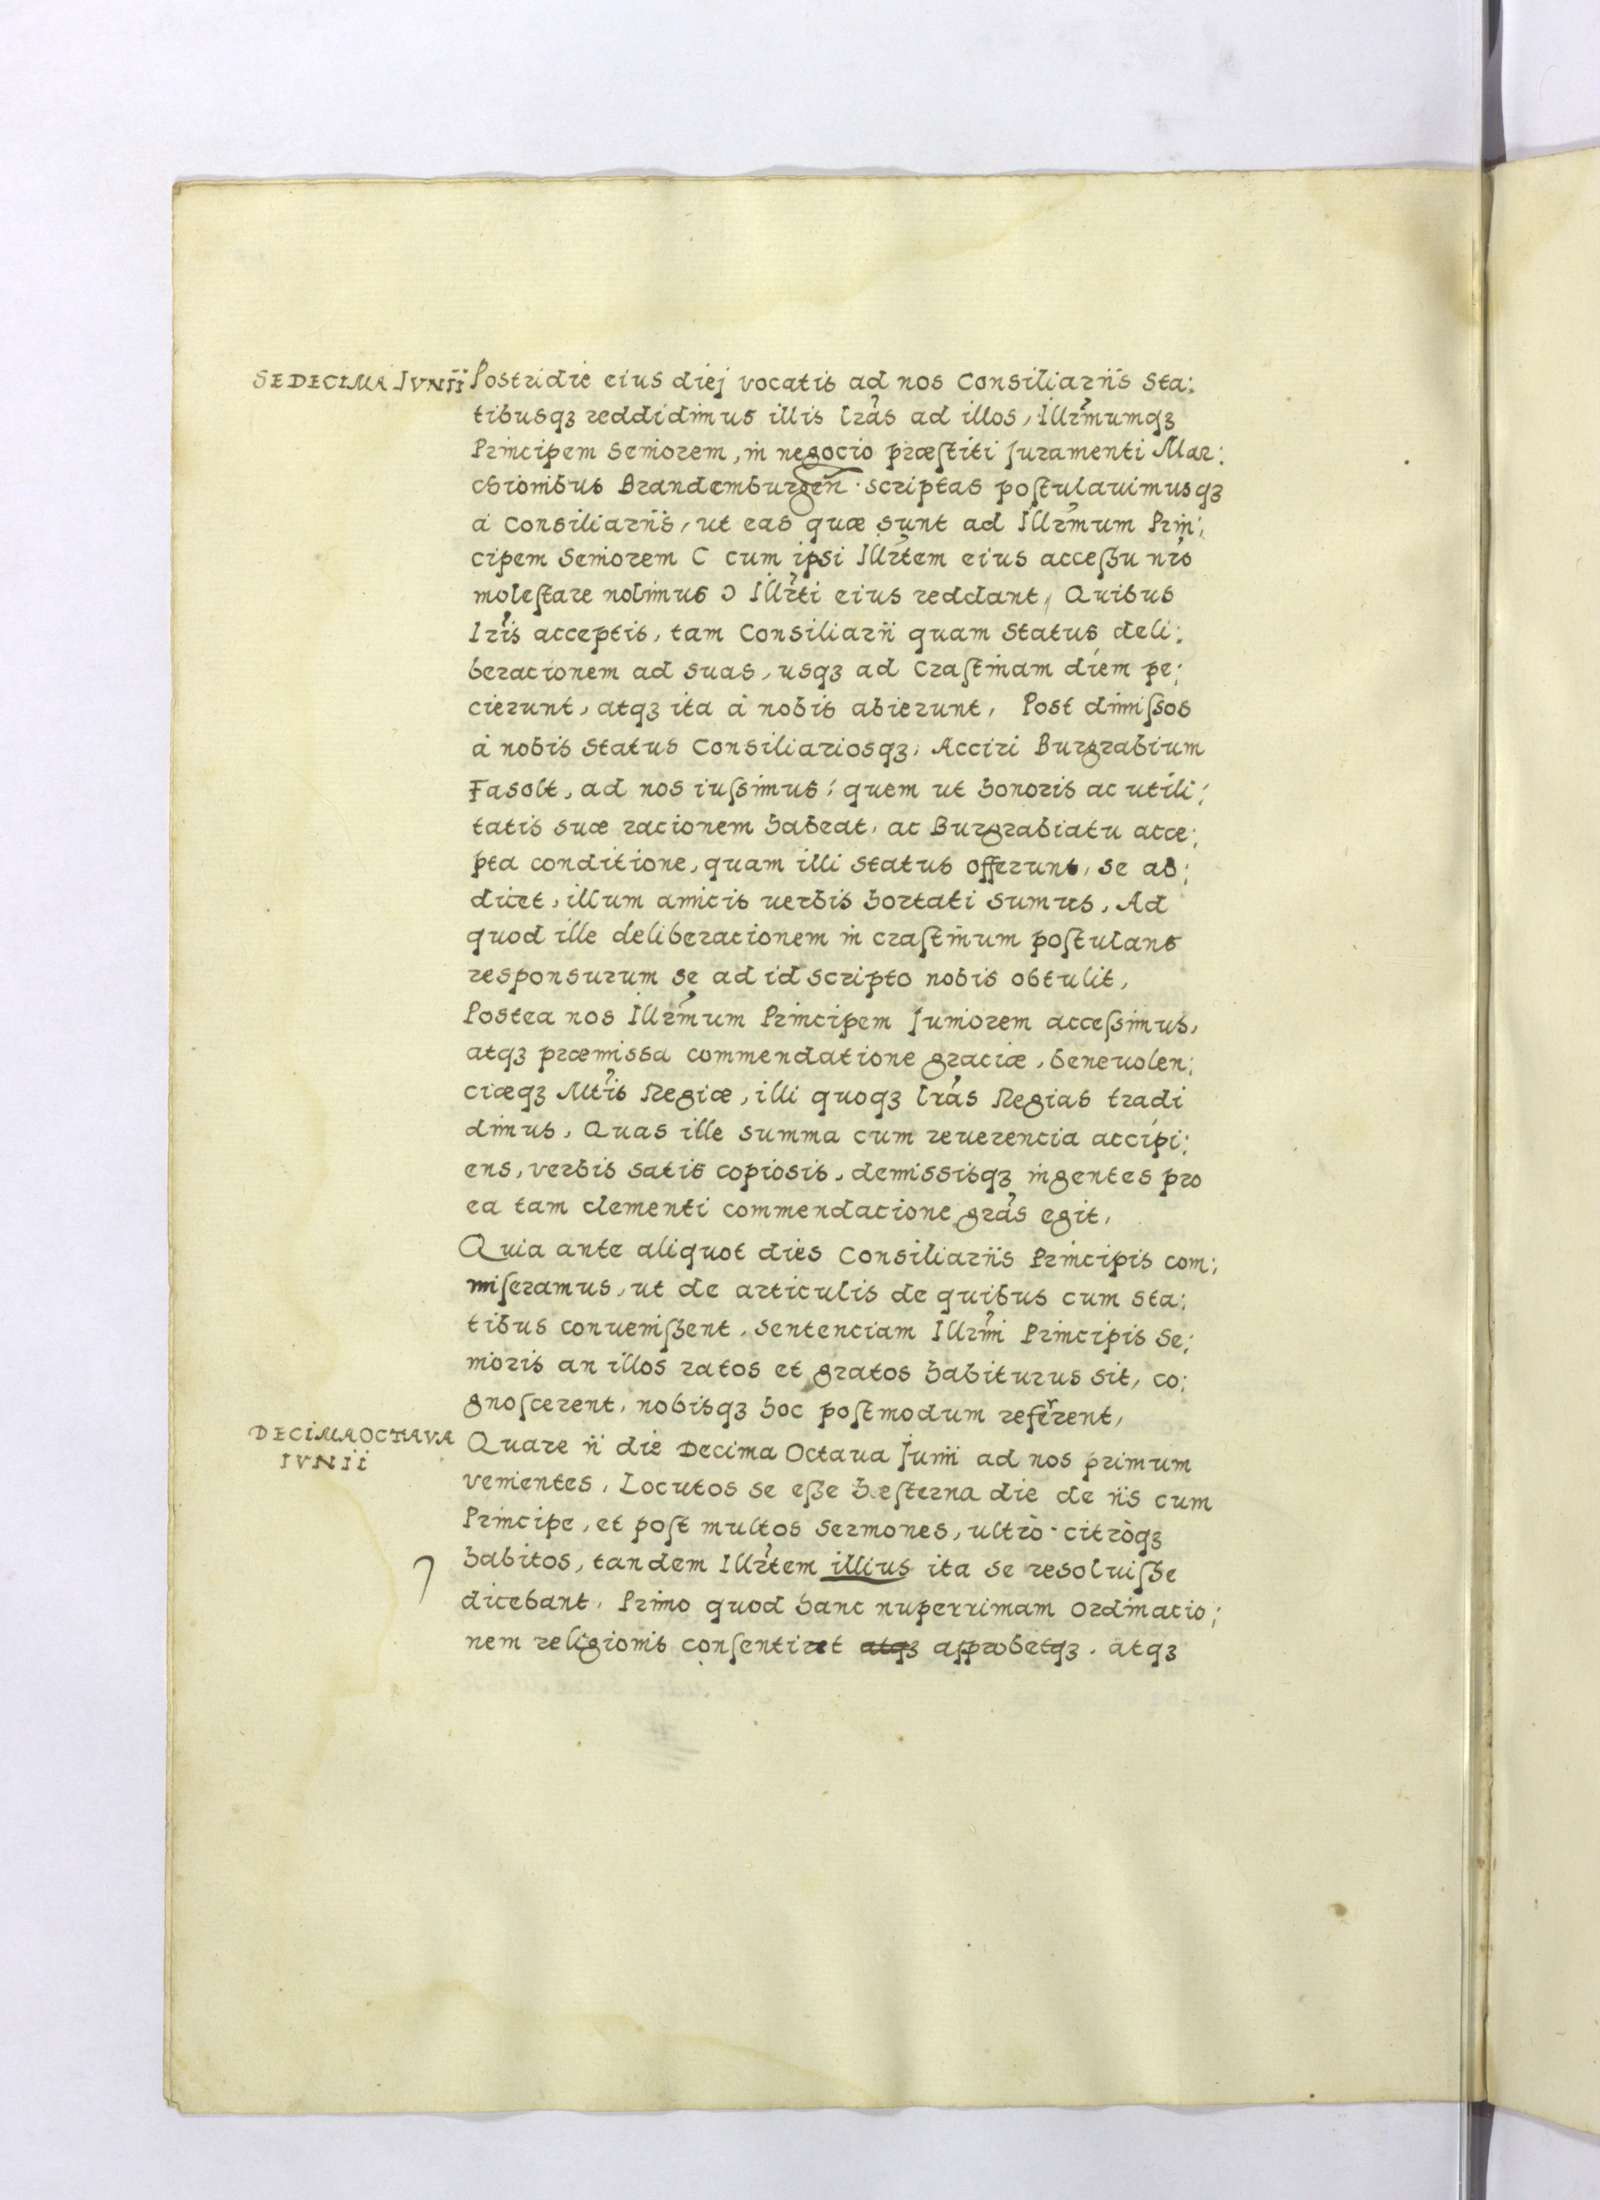 SEDECIMA IVNII Postridie eius diej vocatis ad nos Consiliarijs Sta:
tibusqꝫ reddidimus illis lr̃as ad illos, Illr̃mumqꝫ
Principem Seniorem, in negocio præstiti Juramenti Mar:
chionibus Brandemburgeñ. scriptas postulauimusqꝫ
à Consiliarijs, ut eas quæ sunt ad Illr̃mum Prin:
cipem Seniorem C cum ipsi Illr̃tem eius accessu nr̃o
molestare nolimus Ɔ Illr̃ti eius reddant, Quibus
lr̃is acceptis, tam Consiliarij quam Status deli:
beracionem ad suas, usqꝫ ad Crastinam diem pe:
cierunt, atqꝫ ita à nobis abierunt, Post dimissos
à nobis Status Consiliariosqꝫ, Acciri Burgrabium
Fasolt, ad nos iussimus: quem ut honoris ac utili:
tatis suæ racionem habeat, ac Burgrabiatu acce:
pta conditione, quam illi Status offerunt, se ab:
dicet, illum amicis uerbis hortati sumus, Ad
quod ille deliberacionem in crastinum postulans
responsurum se ad id scripto nobis obtulit,
Postea nos Illr̃mum Principem Juniorem accessimus,
atqꝫ præmissa commendatione graciæ, beneuolen:
ciæqꝫ Mt̃is Regiæ, illi quoqꝫ lr̃as Regias tradi
dimus, Quas ille summa cum reuerencia accipi:
ens, verbis satis copiosis, demissisqꝫ ingentes pro
ea tam clementi commendacione gr̃as egit,
Quia ante aliquot dies Consiliarijs Principis com:
miseramus, ut de articulis de quibus cum sta:
tibus conuenissent, sentenciam Illr̃mi Principis Se:
nioris an illos ratos et gratos habiturus sit, co:
gnoscerent, nobisqꝫ hoc postmodum referrent,
DECIMAOCTAVA
IVNII
Quare ij die Decima Octaua Junij ad nos primum
venientes, Locutos se esse hesterna die de ijs cum
Principe, et post multos sermones, ultrò citròqꝫ
habitos, tandem Illr̃tem illius ita se resoluisse
dicebant, Primo quod hanc nuperrimam Ordinacio:
nem religionis consentiret atqꝫ approbetqꝫ. atqꝫ